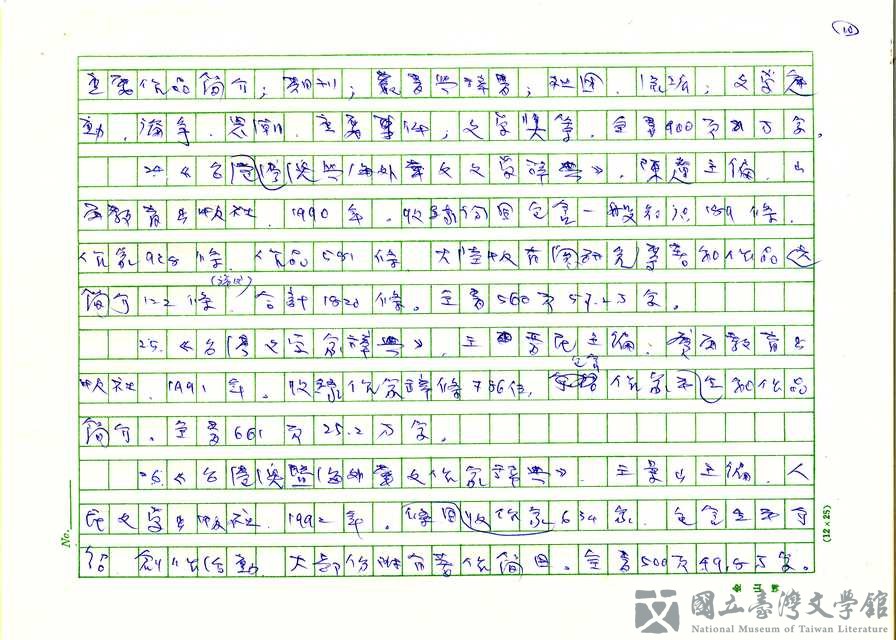 10
重要作品簡介;期刊;叢書與辭書;社團、流派;文學運
動、論爭、思潮、重要事件;文學獎等。全書900頁 万字。
24.《台港澳與海外華文文學辭典》,陳遼主編,山
西教育出版社,1990年。收 包含一般知識189條,
作家928條,作品581條,大陸 和作品選
(論文)
簡介122條,合計1820條。全書560頁57.4万字。
25.《台灣文學家辭典》,王晋民主編,廣西教育出
包含
版社,1991年。收錄作家辭條786位, 作家生平和作品
簡介。全書661頁25.2万字。
26.《台港澳暨海外華文作家辭典》,王景山主編,人
民文學出版社,1992年。條目收作家634家,包含生平介
紹、創作活動,大部份附有著作簡目。全書500頁49.8万字。
No.
(12×25)
國立臺灣文學館
National Museum of Taiwan Literature